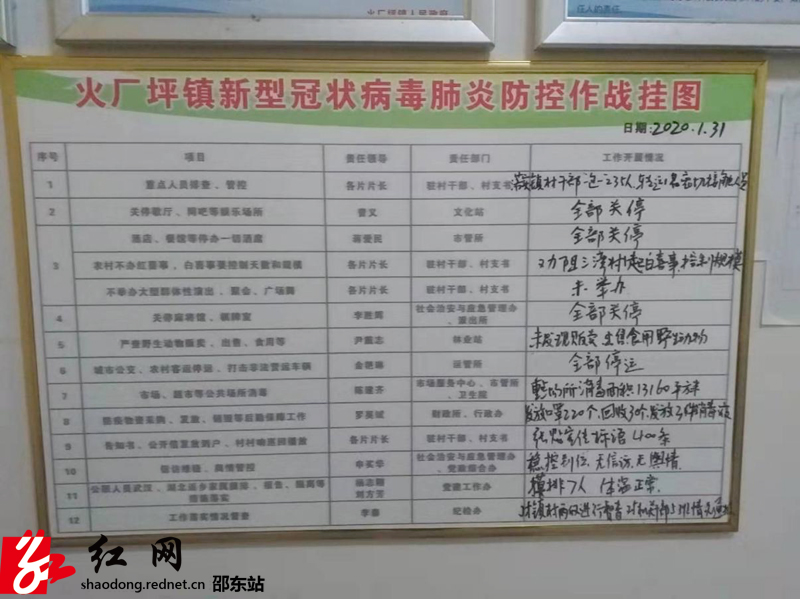 火厂坪镇人民政府
任人的责任
火厂坪镇新型冠状病毒肺炎防控作战挂图
日期:2020.1.31
序号 项目 责任领导 责任部门 工作开展情况
1 重点人员排查、管控 各片片长 驻村干部、村支书
2 关停歌厅、网吧等娱乐场所 曾义 文化站 全部关停
酒店、餐馆等停办一切酒席 蒋爱民 市管所 全部关停
3 农村不办红喜事,白喜事要控制天数和规模 各片片长 驻村干部、村支书
不举办大型群体性演出、聚会、广场舞 各片片长 驻村干部、村支书 未举办
4 关停麻将馆、棋牌室 李胜辉 社会治安与应急管理办、派出所 全部关停
5 严查野生动物贩卖、出售、食用等 尹国志 林业站 未发现贩卖出售食用野生动物
6 城市公交、农村客运停运,打击非法营运车辆 金艳琳 运管所 全部停运
7 市场、超市等公共场所消毒 陈建齐 市场服务中心、市管所、卫生院 消毒面积13160平方米
8 防疫物资采购、发放、销毁等后勤保障工作 罗昊城 财政所、行政办 发放口罩220个,回收30个
9 告知书、公开信发放到户,村村响循环播放 各片片长 驻村干部、村支书 张贴宣传标语400条
10 信访维稳、舆情管控 申买华 社会治安与应急管理办、党政综合办 稳控到位,无信访,无舆情
11 公职人员武汉、湖北返乡家属摸排、报告、隔离等措施落实 刘方芳 党政工作办 摸排7人 体温正常
12 工作落实情况督查 李泰 纪检办
红网
shaodong.rednet.cn 邵东站